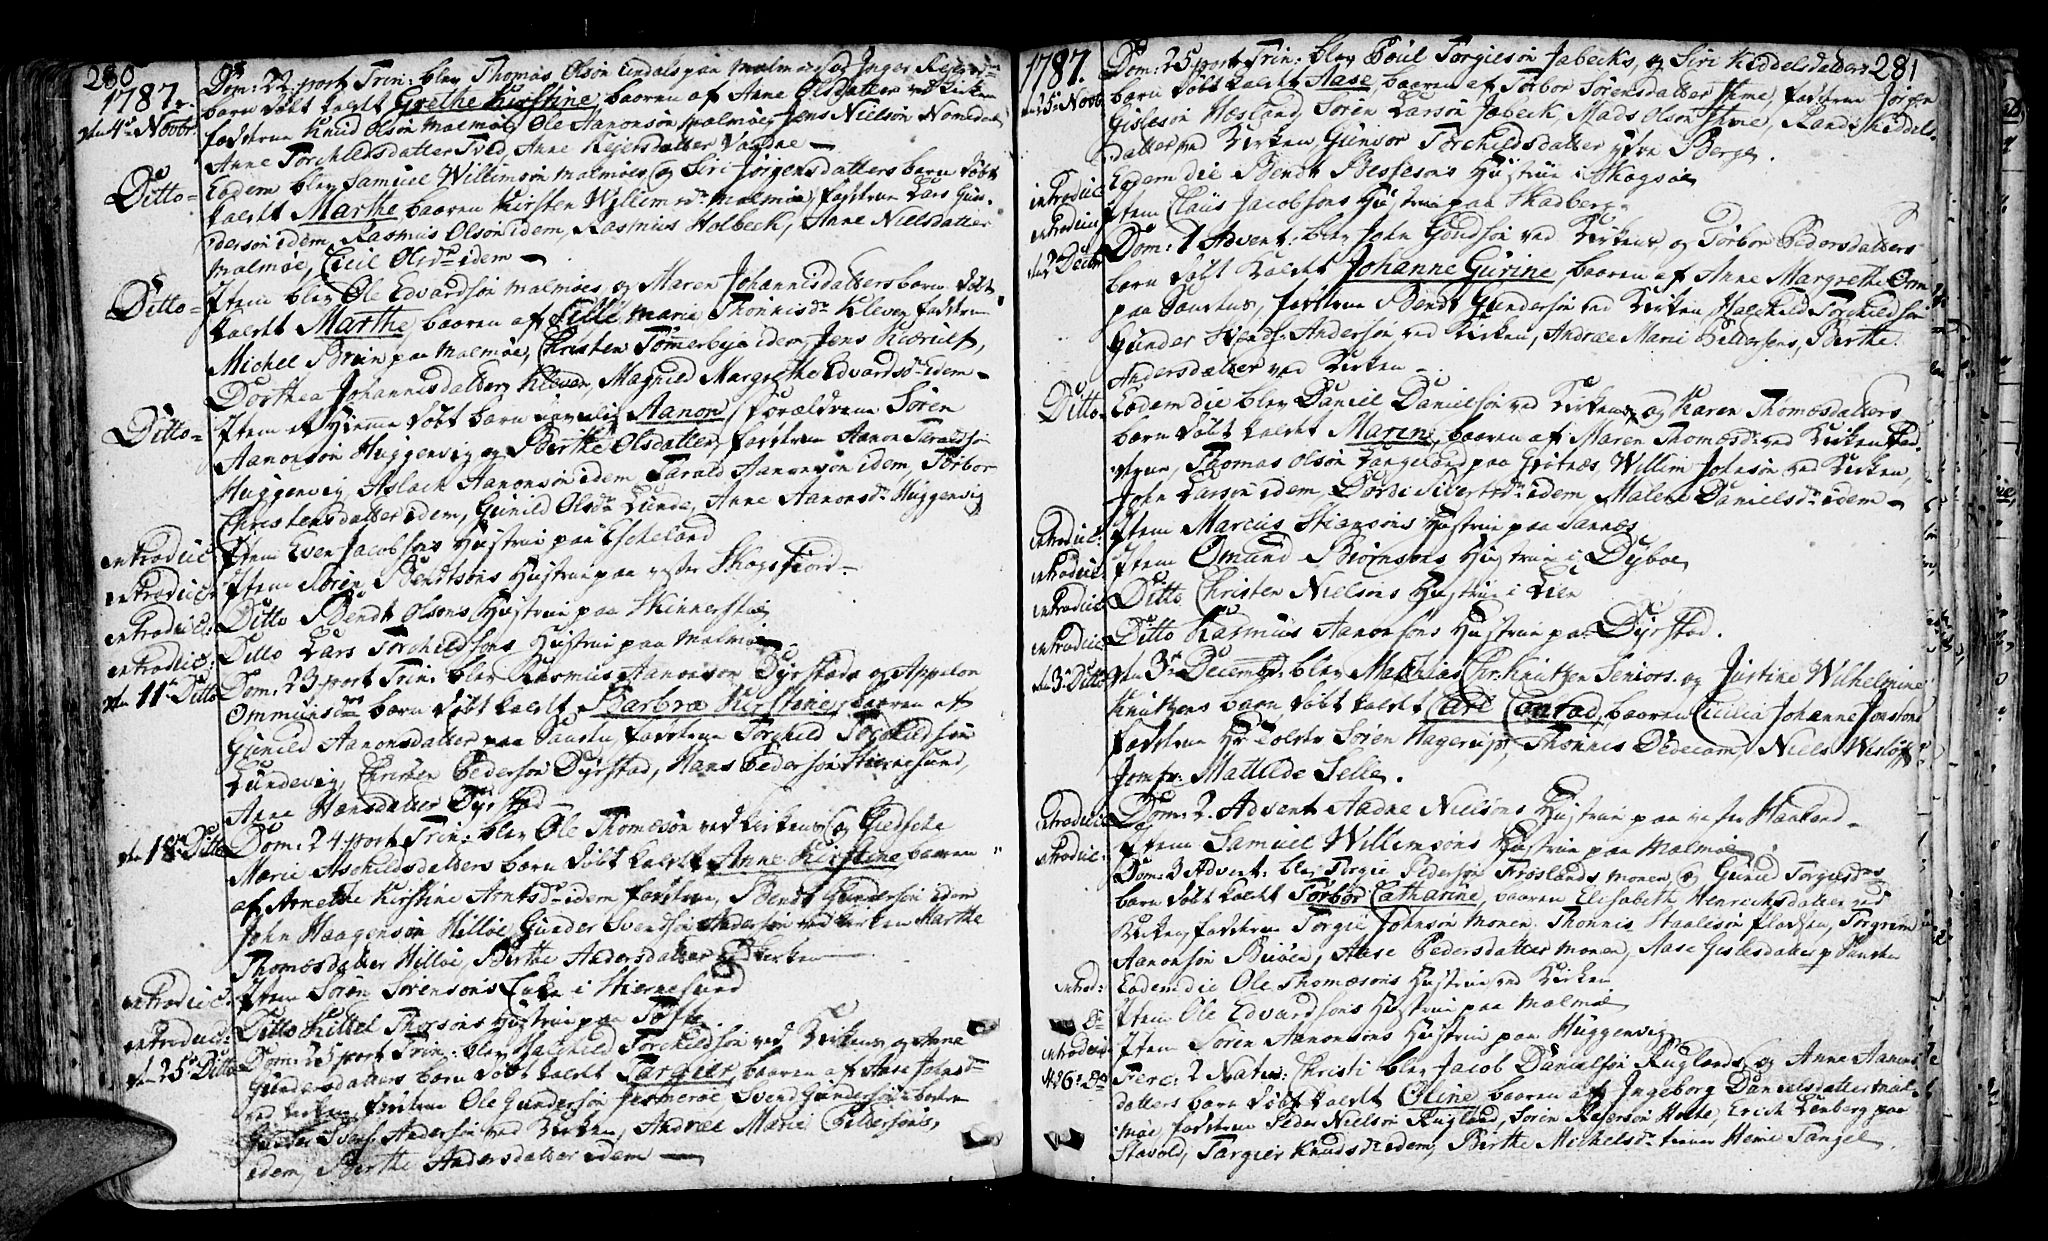 280
1787.
Dom: 22 post Trin: blev Thomas Olsøn Eindals paa Malmøe og Inger Rejers
barn døbt kaldt Grethe Kirstine, baaren af Anne Olsdatter ved Kirken
den 4de Novbr:
faddrene Knud Olsøn Malmøe, Ole Aanonsøn Malmøe, Jens Nielsøn
Anne Torchildsdatter Tved, Anne Rejersdatter
Ditto
Eodem blev Samuel Willumsøn Malmøes og Siri Jørgensdatters barn døbt
kaldt Marthe baaren Kirsten Willums dr Malmøe, faddrene Lars Gun-
dersøn idem, Rasmus Olsøn idem, Rasmus Holbeck, Anne Nielsdatter
Malmøe, Cicil Olsdr idem
Ditto
Item blev Ole Edvardsøn Malmøes og Maren Johannisdatters barn døbt
kaldt Marthe, baaren af Sille Marie Thønnisdr Kleven, faddrene
Michel Bruun paa Malmøe, Christen Tømerbye idem, Jens
Dorthea Johannisdatter Kleven, Magnild Margrethe Edvardsdr idem
Ditto
Item et hiemme døbt barn navnlig Aanon, forældrene Søren
Aanonsøn Huggenvig og Berthe Olsdatter, faddrene Aanon Taraldsøn
Huggenvig, Aslach Aanonsøn idem, Tarald Aanonsøn idem, Torbor
Christensdatter idem, Gunild Olsdr Lunde, Anne Aanonsdr Huggenvig
introduc: Item Even Jacobsøns Hustrue paa Escheland
introduc: Item Søren Bendtsøns Hustrue paa vestre Skogsfiord
introduc: Ditto Bendt Olsøns Hustrue paa Skinnerstøe
introduc: Ditto Lars Torchildsøns Hustrue paa Malmøe
den 11te Ditto
Dom: 23 post Trin: blev Rasmus Aanonsøn Dyrstads og Appelon
Ommunds barn døbt kaldt Barbra Kirstine, baaren af
Gunild Aanonsdatter paa Sanstø, faddrene Torchild Torchildsøn
Lundevig, Christen Pedersøn Dyrstad, Hans Pedersøn Stiernesund,
Anne Hansdatter Dyrstad
den 18de Ditto
Dom: 24 post Trin: blev Ole Thomæsøn ved Kirkens og Giedsche
Marie Aschildsdatters barn døbt kaldt Anne Kirstine baaren
af Arnethe Kirstine Arntsdr idem faddrene, Bendt Gundersøn idem
John Haagensøn Hilløe, Gunder Svendsøn Andersøn ved Kirken Marthe
Thomæsdatter Hilløe, Berthe Andersdatter ved Kirken
introduc: Item Søren Sørensøns Enke i Stiernesund
introduc: Ditto Kittel Thorsøns Hustrue paa Tofte
den 25de Ditto
Dom: 25 post Trin: blev Halchild Torchildsøn ved Kirkens og Anne
Gundersdatters barn døbt kaldt Targier, baaren af Aase Johnsdr
ved Kirken, faddrene Ole Gundersøn Gismerøe, Svend Gundersøn
Gunder Svends: Andersøn ved Kirken, Andræe Marie Peldersøns,
idem, Berthe Andersdatter idem
281
1787.
den 25de Novb
Dom: 25 post Trin: blev Poul Torgiesøn Jabecks, og Siri Kiddelsdatters
barn døbt kaldt Aase, baaren af Torbor Sørensdatter Ime, faddrene Jørgen
Gislesøn Høsland, Søren Larsøn Jabeck, Mads Olsøn Ime, Randi Kiddels-
datter ved Kirken, Gunvor Torchildsdatter øfre Berge.
introduc Eodem die Bendt Bessesøns Hustrue i Skogsøe
introduc Item Claus Jacobsøns Hustrue paa Skadberg
den 2de Decbr
Dom: 1 Advent: blev John Gundsøn ved Kirkens og Torbor Pedersdatters
barn døbt kaldt Johanne Gurine, baaren af Anne Margrethe Orm
paa Sanstøe, faddrene Bendt Gundersøn ved Kirken, Halchild Torchildsøn
Gunder Svends: Andersøn ved Kirken, Andræe Marie Peldersøns, Berthe
Andersdatter ved Kirken
Ditto
Eodem die blev Daniel Danielsøn ved Kirkens og Karen Thomæsdatters
barn døbt kaldt Maren, baaren af Maren Thomæsdr ved Kirken, Fad-
drene, Thomas Olsøn Vangeland paa Grøtnes, Willum Johnsøn ved Kirken,
John Larsøn idem, Dorthe Sivertsdr idem, Malene Danielsdr idem
introduc: Item Marcus Stiansøns Hustrue paa Sannes
introduc: Item Omund Biørnsøns Hustrue i Dyboe
introduc: Ditto Christen Nielsøns Hustrue i Lien
introduc: Ditto Rasmus Aanonsøns Hustrue paa Dyrstad.
den 3de Ditto
den 3de Decembr: blev Mathias Chr: Knutzen Seniors og Justine Wilhelmine
Knutzens barn døbt kaldt Carl Conrad, baaren Cicilia Johanne
faddrene Hr Tolder Søren Hagerup, Thønnis Dedecam, Niels Wisløff
Jomfr: Mattilde Selle.
introduc Dom: 2. Advent Aadne Nielsøns Hustrue paa
introduc: Item Samuel Willumsøns Hustrue paa Malmøe
Dom: 3 Advent: blev Torgie Pedersøn Frøslands monen og Gunild Torgiesdrs
barn døbt kaldt Torbor Catharine, baaren Elisabeth Henrichsdatter ved
Kirken, faddrene Torgie Johnsøn monen, Thønnis Staalesøn, Torgrim
Aanonsøn, Aase Pedersdatter monen, Aase Gislesdatter p Sansten
introd: Eodem die Ole Thomæsøns Hustrue ved Kirken
Do Item Ole Edvardsøns Hustrue paa Malmøe
introduc: Item Søren Aanonsøns Hustrue paa Huggenvig
d: 26de Do
Feri: 2 Nativ: Christi blev Jacob Danielsøn Ruglands og Anne Aanons
datters barn døbt kaldt Oline baaren af Ingeborg Danielsdatter Mal-
møe, faddrene Peder Nielsøn Rugland, Søren Rejersøn Holte, Erich Lenberg paa
Stavold, Targier Knudsdr idem, Berthe Michelsdr